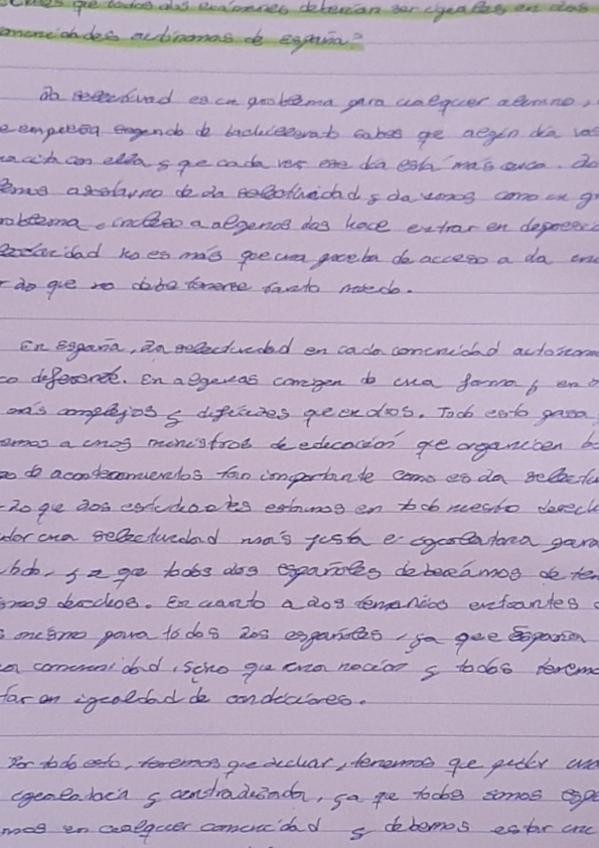 que todos los exámenes deberían ser iguales en las
comunidades autónomas de españa?
La selectividad es un problema para cualquier alumno,
empieza segundo de bachillerato sabes que algún día vas
con ella y que cada vez ese día está más cerca.
de la selectividad y la vemos como un
problema, incluso a algunos les hace entrar en depresión
no es más que una prueba de acceso a la
lo que no debe tenerse tanto miedo.
En España, la selectividad en cada comunidad
diferente. En algunas corrigen de una forma, en
más complejos y difíciles que en otros. Todo esto pasa
a unos ministros de educación que organicen
de acontecimientos tan importante como es la
lo que los estudiantes estamos en todo nuestro
una selectividad más justa e igualitaria para
ya que todos los españoles deberíamos de
derechos. En cuanto a los temarios
mismo para todos los españoles, ya que España
comunidad, sino que una nación y todos
en igualdad de condiciones.
Por todo esto, tenemos que luchar, tenemos que pedir una
y centralizada, ya que todos somos
en cualquier comunidad y debemos estar